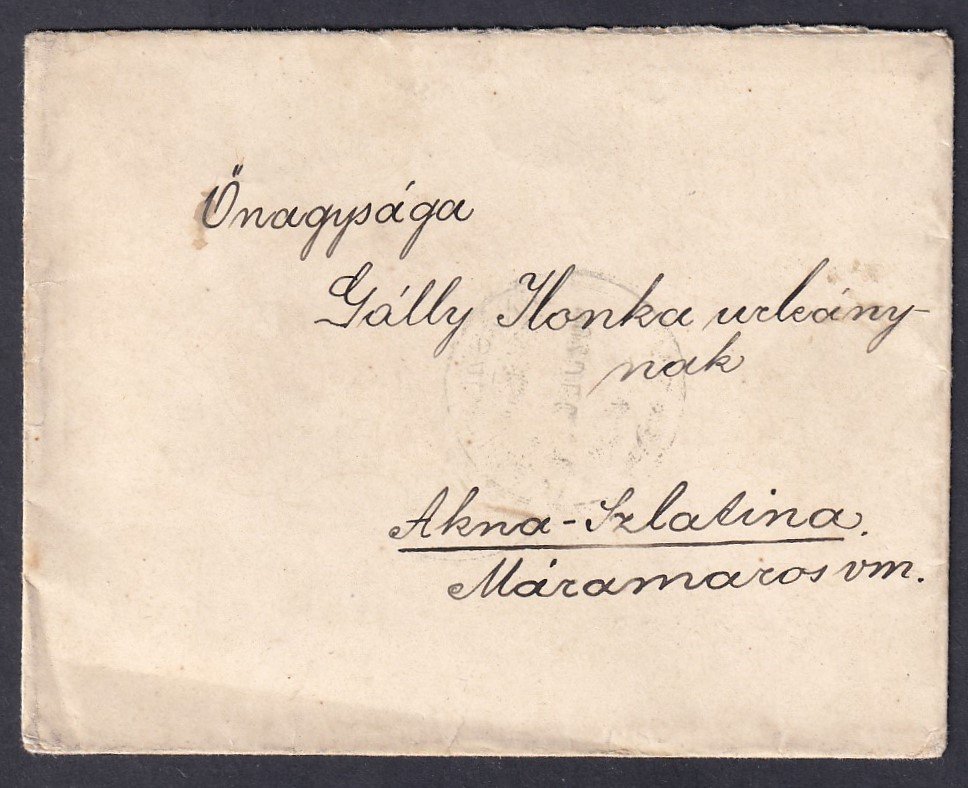 Őnagysága
Gálly Ilonka urleány-
nak
Akna-Szlatina.
Máramaros vm.